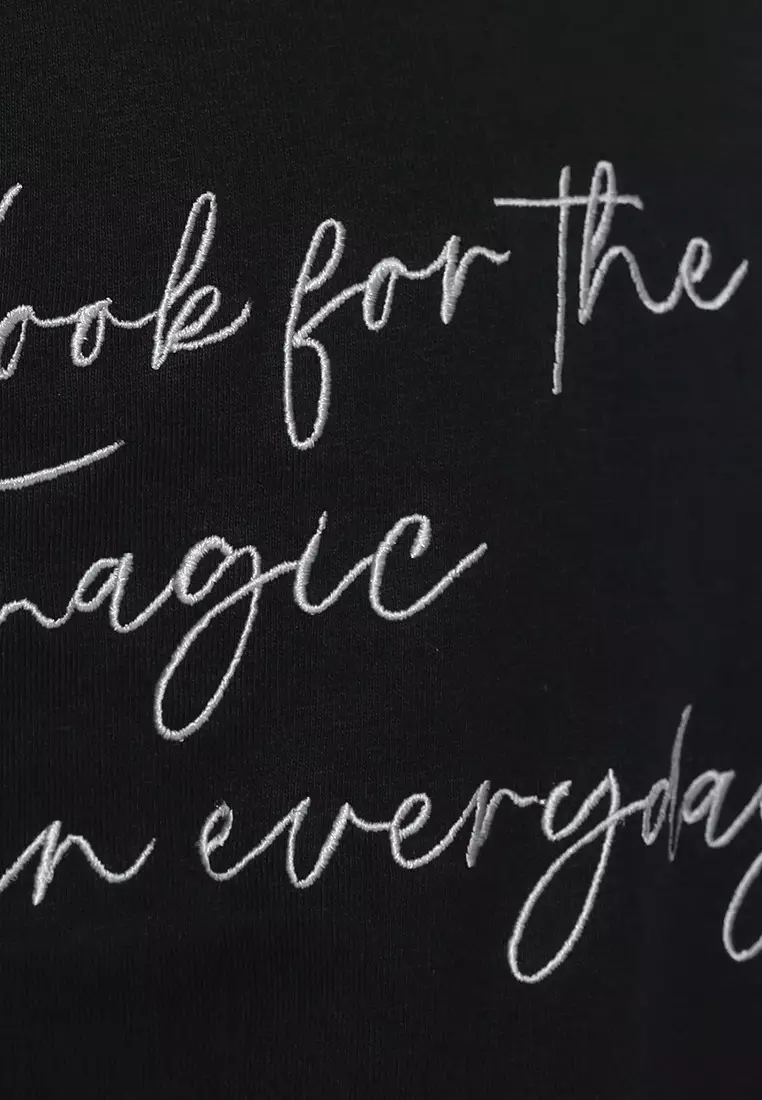 look for the
magic
in everyday